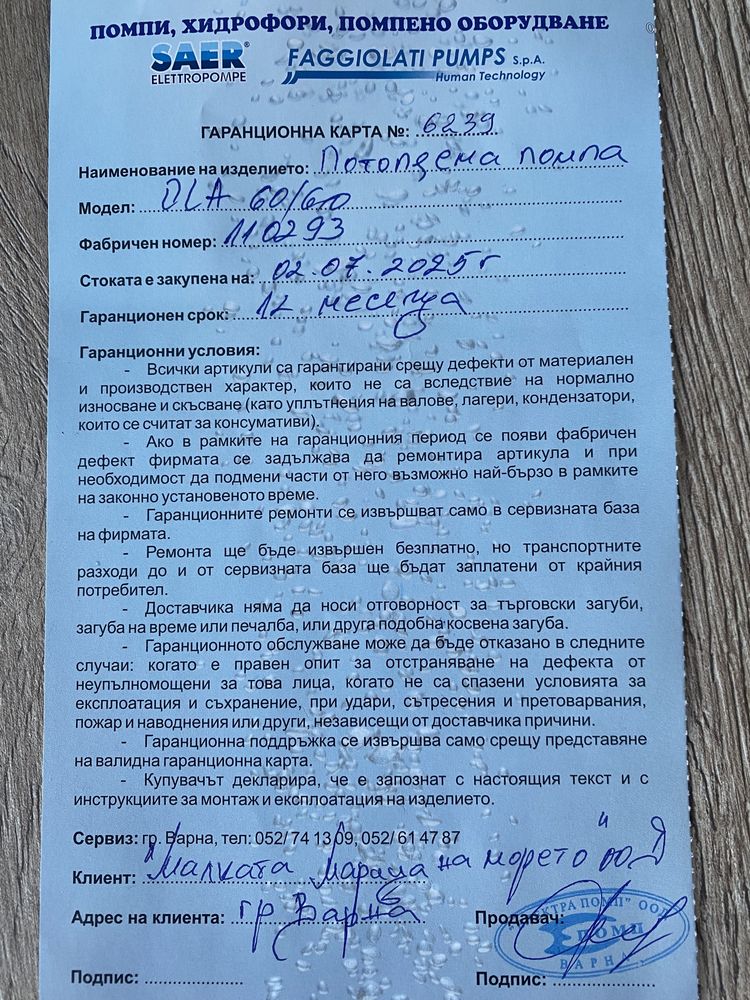 ПОМПИ, ХИДРОФОРИ, ПОМПЕНО ОБОРУДВАНЕ
SAER® FAGGIOLATI PUMPS S.p.A.
ELETTROPOMPE Human Technology
ГАРАНЦИОННА КАРТА №: 6239
Наименование на изделието: Потопяема помпа
Модел: DLA 60/60
Фабричен номер: 110293
Стоката е закупена на: 02.07.2025г
Гаранционен срок: 12 месеца
Гаранционни условия:
- Всички артикули са гарантирани срещу дефекти от материален
и производствен характер, които не са вследствие на нормално
износване и скъсване (като уплътнения на валове, лагери, кондензатори,
които се считат за консумативи).
- Ако в рамките на гаранционния период се появи фабричен
дефект фирмата се задължава да ремонтира артикула и при
необходимост да подмени части от него възможно най-бързо в рамките
на законно установеното време.
- Гаранционните ремонти се извършват само в сервизната база
на фирмата.
- Ремонта ще бъде извършен безплатно, но транспортните
разходи до и от сервизната база ще бъдат заплатени от крайния
потребител.
- Доставчика няма да носи отговорност за търговски загуби,
загуба на време или печалба, или друга подобна косвена загуба.
- Гаранционното обслужване може да бъде отказано в следните
случаи: когато е правен опит за отстраняване на дефекта от
неупълномощени за това лица, когато не са спазени условията за
експлоатация и съхранение, при удари, сътресения и претоварвания,
пожар и наводнения или други, независещи от доставчика причини.
- Гаранционна поддръжка се извършва само срещу представяне
на валидна гаранционна карта.
- Купувачът декларира, че е запознат с настоящия текст и с
инструкциите за монтаж и експлоатация на изделието.
Сервиз: гр. Варна, тел: 052/ 74 13 09, 052/ 61 47 87
Клиент: "Малката на морето" ООД
Адрес на клиента: гр Варна Продавач:
ПОМП" ООД
ПОМП
ВАРНА
Подпис: Подпис: